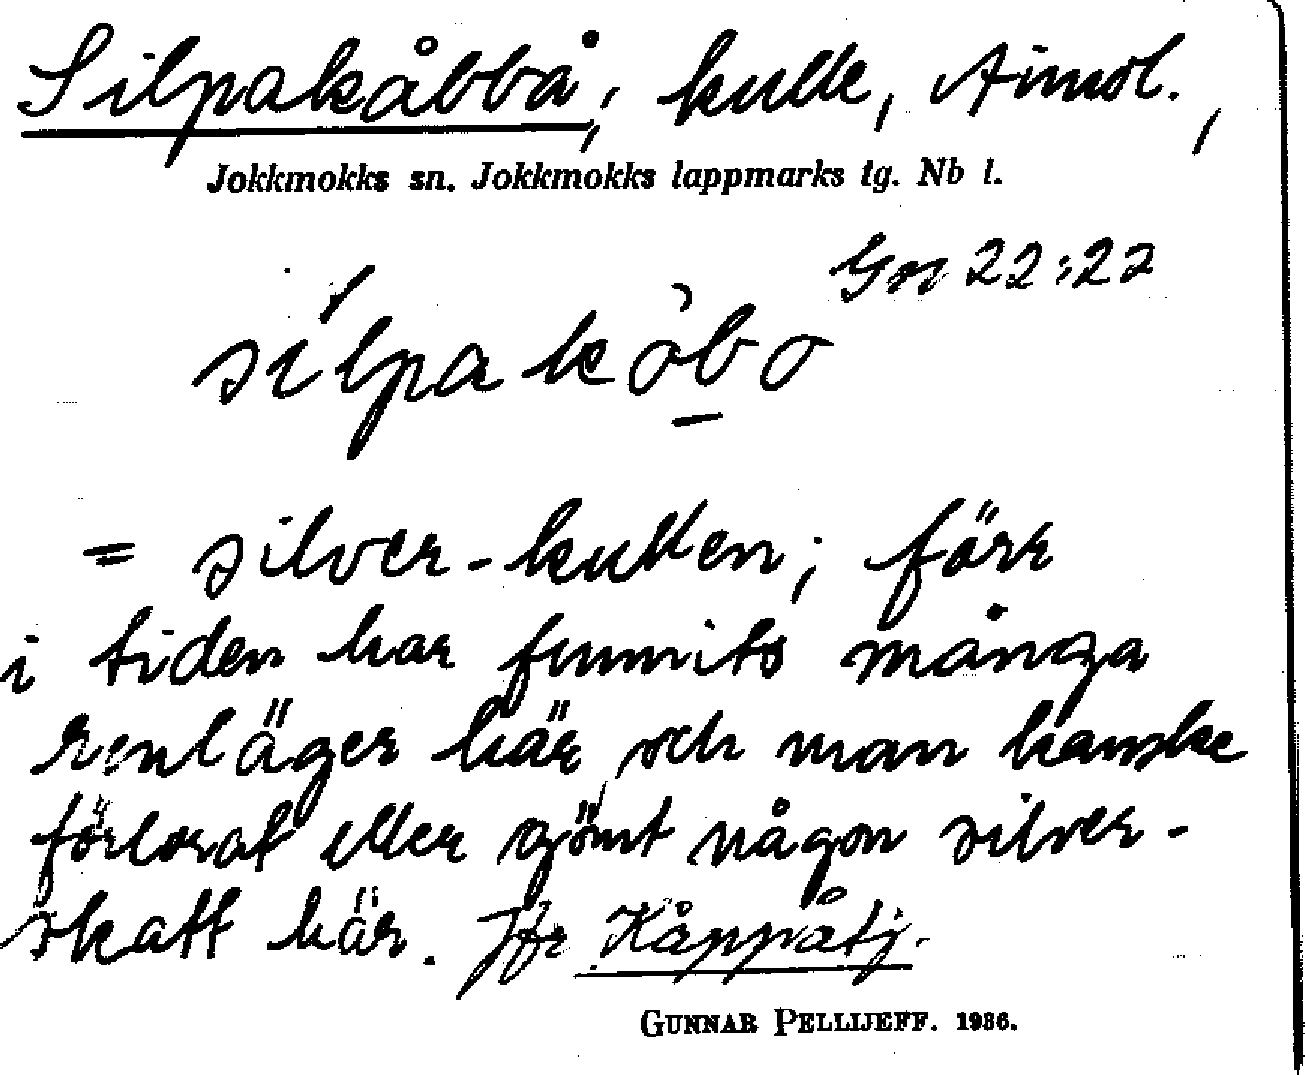 Silpakåbbå, kulle, Aimol.,
Jokkmokks sn. Jokkmokks lappmarks tg. Nb l.
Gn 22:22
silpakòbo
= silver-kullen; förr
i tiden har funnits många
renläger här, och man kanske
förlorat eller gömt någon silver-
skatt här. Jfr Kåppåtj.
GUNNAR PELLIJEFF. 1936.